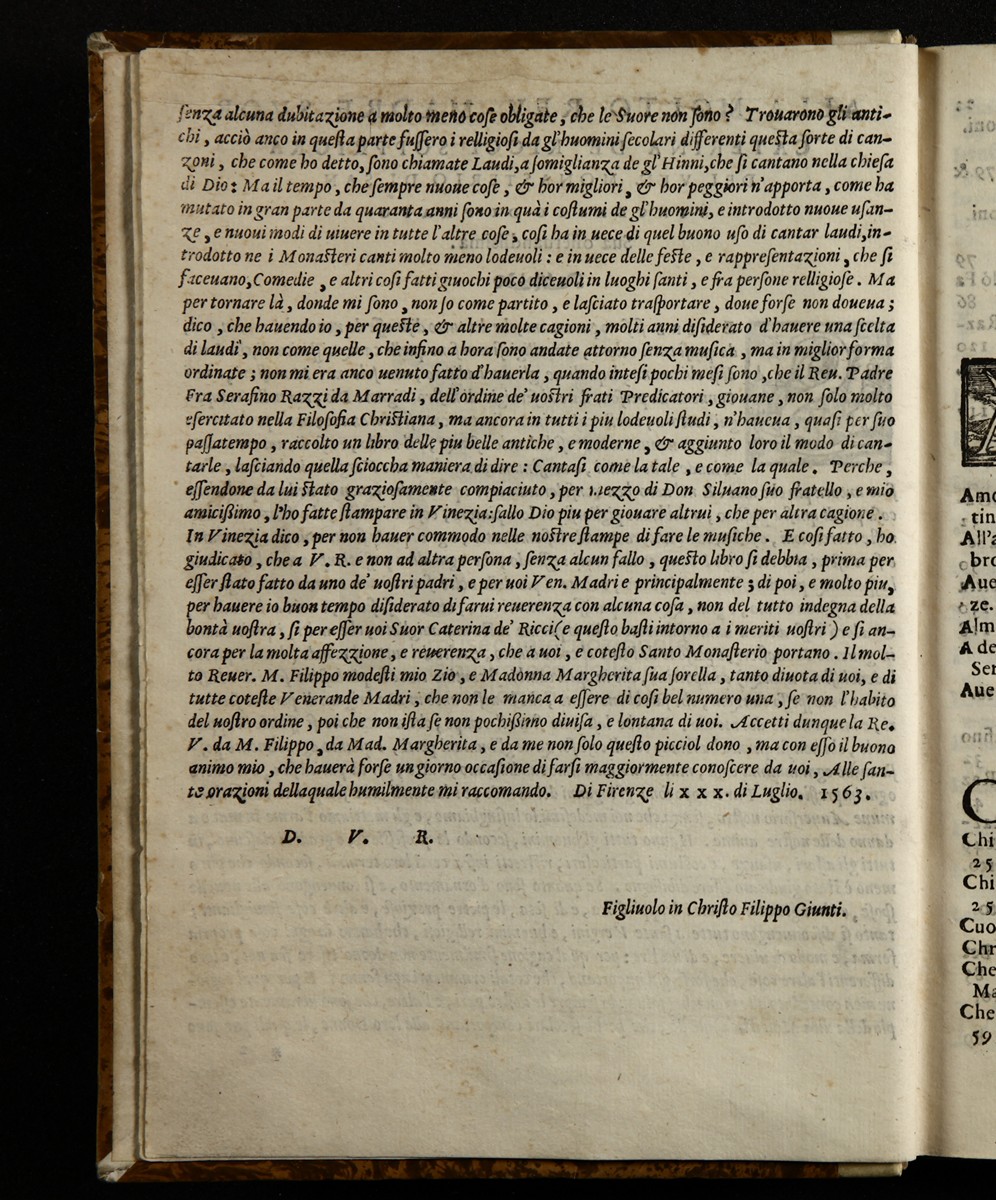 ſenza alcuna dubitazione a molto meno coſe obligate, che le Suore non ſono? Trouarono gli anti-
chi, acciò anco in queſta parte fuſſero i relligioſi da gl'huomini ſecolari differenti queſta ſorte di can-
zoni, che come ho detto, ſono chiamate Laudi, a ſomiglianza de gl'Hinni, che ſi cantano nella chieſa
di Dio: Ma il tempo, che ſempre nuoue coſe, & hor migliori, & hor peggiori n'apporta, come ha
mutato in gran parte da quaranta anni ſono in quà i coſtumi de gl'huomini, e introdotto nuoue uſan-
ze, e nuoui modi di uiuere in tutte l'altre coſe, coſi ha in uece di quel buono uſo di cantar laudi, in-
trodotto ne i Monaſteri canti molto meno lodeuoli: e in uece delle feſte, e rappreſentazioni, che ſi
faceuano, Comedie, e altri coſi fatti giuochi poco diceuoli in luoghi ſanti, e fra perſone relligioſe. Ma
per tornare là, donde mi ſono, non ſo come partito, e laſciato traſportare, doue forſe non doueua;
dico, che hauendo io, per queſte, & altre molte cagioni, molti anni diſiderato d'hauere una ſcelta
di laudi, non come quelle, che inſino a hora ſono andate attorno ſenza muſica, ma in miglior forma
ordinate; non mi era anco uenuto fatto d'hauerla, quando inteſi pochi meſi ſono, che il Reu. Padre
Fra Serafino Razzi da Marradi, dell'ordine de' uoſtri frati Predicatori, giouane, non ſolo molto
eſercitato nella Filoſofia Chriſtiana, ma ancora in tutti i piu lodeuoli ſtudi, n'haueua, quaſi per ſuo
paſſatempo, raccolto un libro delle piu belle antiche, e moderne, & aggiunto loro il modo di can-
tarle, laſciando quella ſcioccha maniera di dire: Cantaſi come la tale, e come la quale. Perche,
eſſendone da lui ſtato grazioſamente compiaciuto, per mezzo di Don Siluano ſuo fratello, e mio
amiciſſimo, l'ho fatte ſtampare in Vinezia: ſallo Dio piu per giouare altrui, che per altra cagione.
In Vinezia dico, per non hauer commodo nelle noſtre ſtampe di fare le muſiche. E coſi fatto, ho
giudicato, che a V. R. e non ad altra perſona, ſenza alcun fallo, queſto libro ſi debbia, prima per
eſſer ſtato fatto da uno de' uoſtri padri, e per uoi Ven. Madri e principalmente; di poi, e molto piu,
per hauere io buon tempo diſiderato di farui reuerenza con alcuna coſa, non del tutto indegna della
bontà uoſtra, ſi per eſſer uoi Suor Caterina de' Ricci (e queſto baſti intorno a i meriti uoſtri) e ſi an-
cora per la molta affezzione, e reuerenza, che a uoi, e coteſto Santo Monaſterio portano. Il mol-
to Reuer. M. Filippo modeſti mio Zio, e Madonna Margherita ſua ſorella, tanto diuota di uoi, e di
tutte coteſte Venerande Madri, che non le manca a eſſere di coſi bel numero una, ſe non l'habito
del uoſtro ordine, poi che non iſta ſe non pochiſſimo diuiſa, e lontana di uoi. Accetti dunque la Re.
V. da M. Filippo, da Mad. Margherita, e da me non ſolo queſto picciol dono, ma con eſſo il buono
animo mio, che hauerà forſe un giorno occaſione di farſi maggiormente conoſcere da uoi, Alle ſan-
te orazioni della quale humilmente mi raccomando. Di Firenze li x x x. di Luglio. 1563.
D. V. R.
Figliuolo in Chriſto Filippo Giunti.
Amo
tin
All'a
bro
Aue
ze.
Alm
A de
Ser
Aue
C
Chi
25
Chi
25
Cuo
Chr
Che
Ma
Che
59